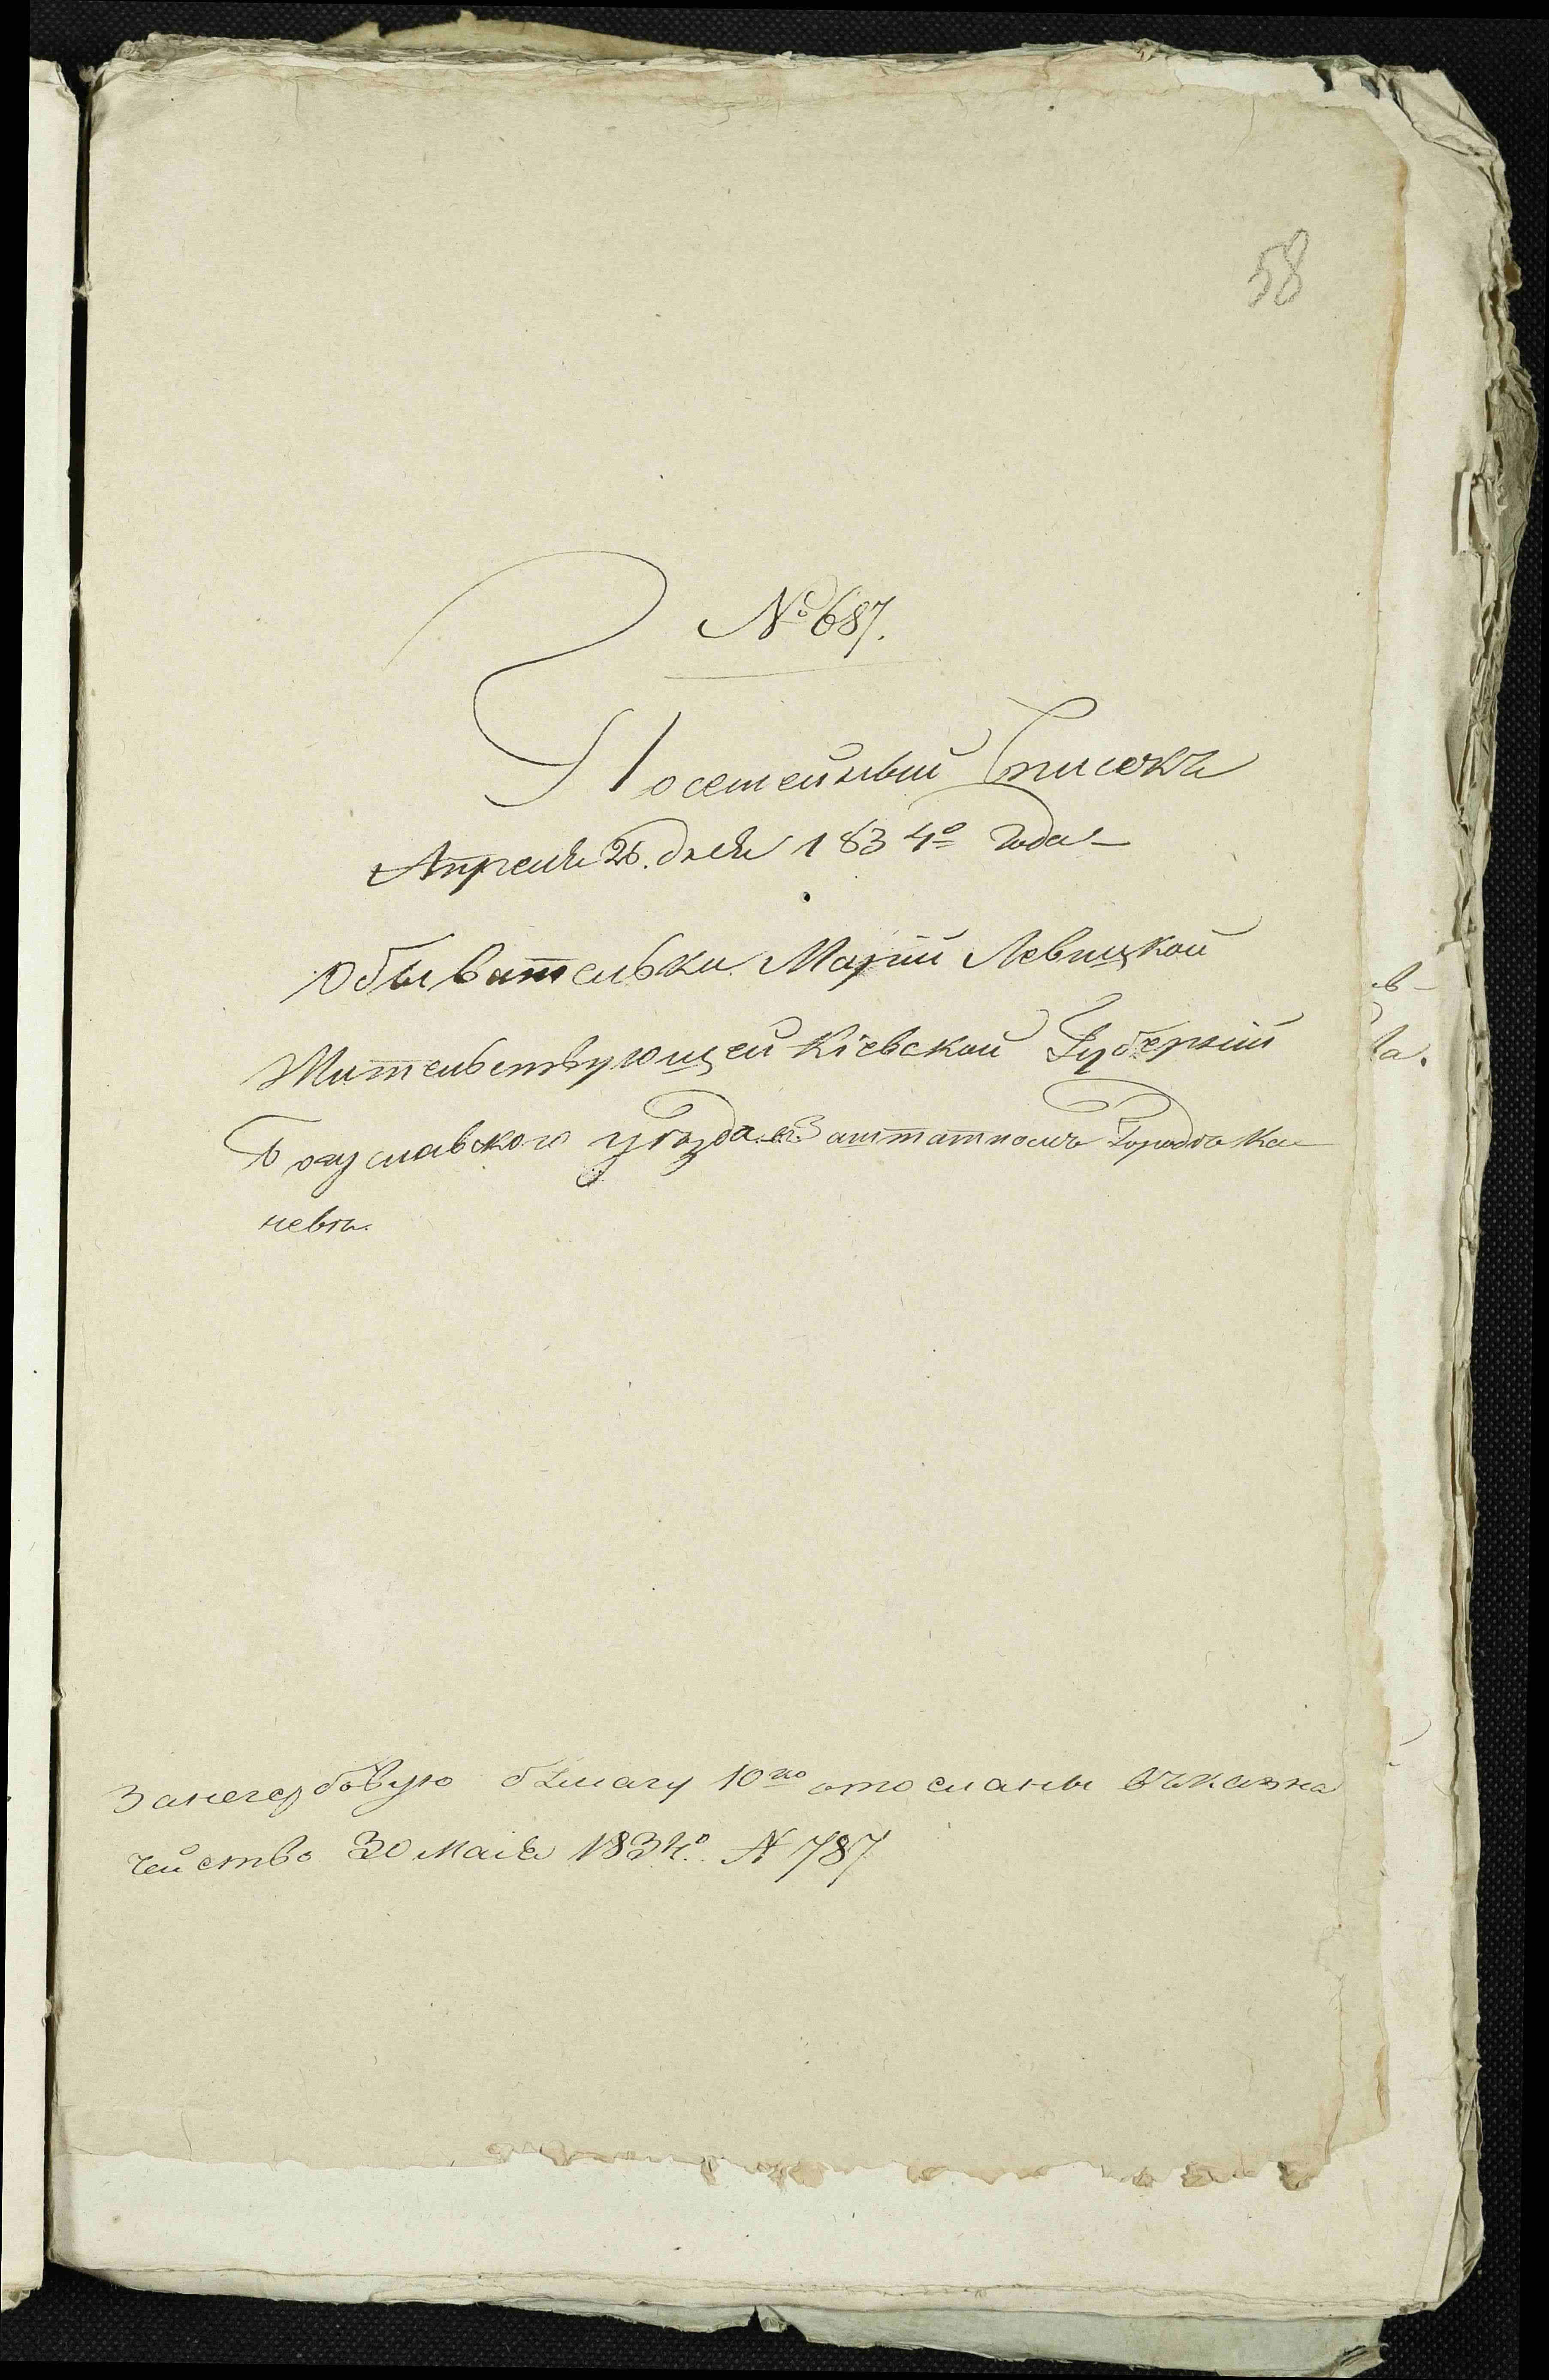 58
№ 687.
Посемейный Списокъ
Апреля 26. дня 1834º Года
Обывательки Маріи Левицкой
Жительствующей Кіевской Губерніи
Богуславского уѣзда въ Заштатномъ Городѣ Ка
невѣ.
Занегербовую бумагу 10ко отосланы въ казна
чейство 30 Маія 1834º № 787